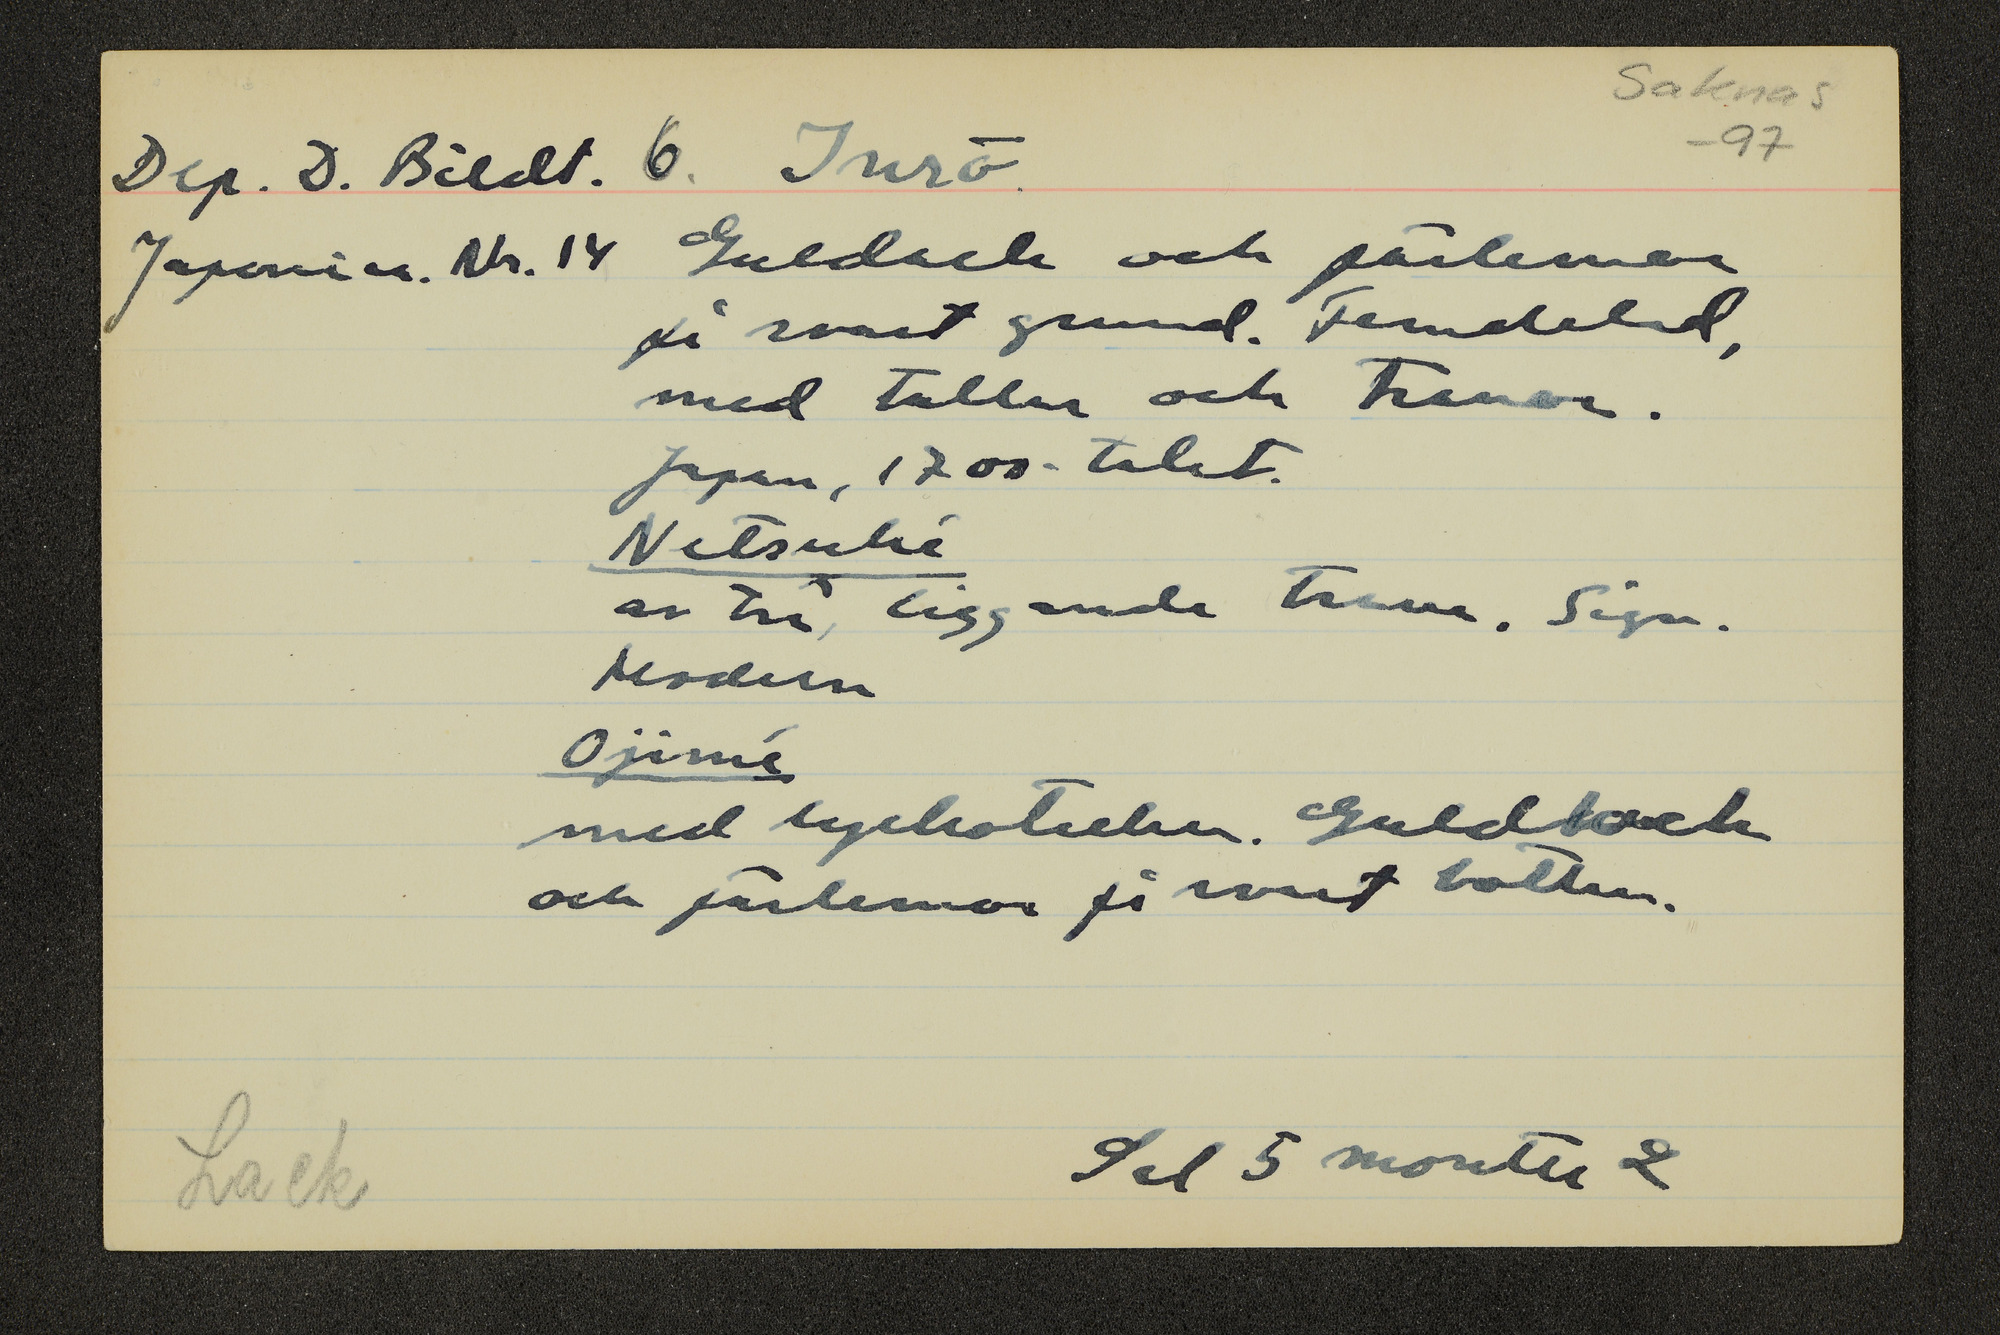 Saknas
-97
Dep. D. Bildt. 6. Inrō.
Japonica. Nr. 14 Guldlack och pärlemor
på svart grund. Femdelad,
med tallar och tranor.
Japan, 1700-talet.
Netsuké
av trä, liggande trana. Sign.
Modern
Ojimé
med lyckotecken. Guldlack
och pärlemor på svart botten.
Lack
Sal 5 monter 2